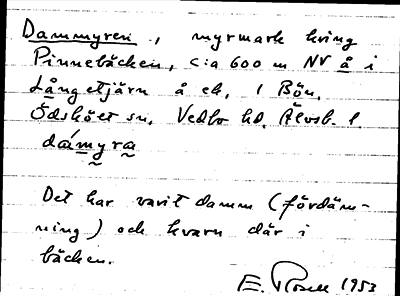 Dammyren, myrmark kring
Pinnebäcken, c:a 600 m NV å i
Långetjärn å ek, 1 Bön,
Ödsköet sn, Vedbo hd, Älvsb. l.
dámyra
Det har varit damm (fördäm-
ning) och kvarn där i
bäcken.
E. Rosell 1953